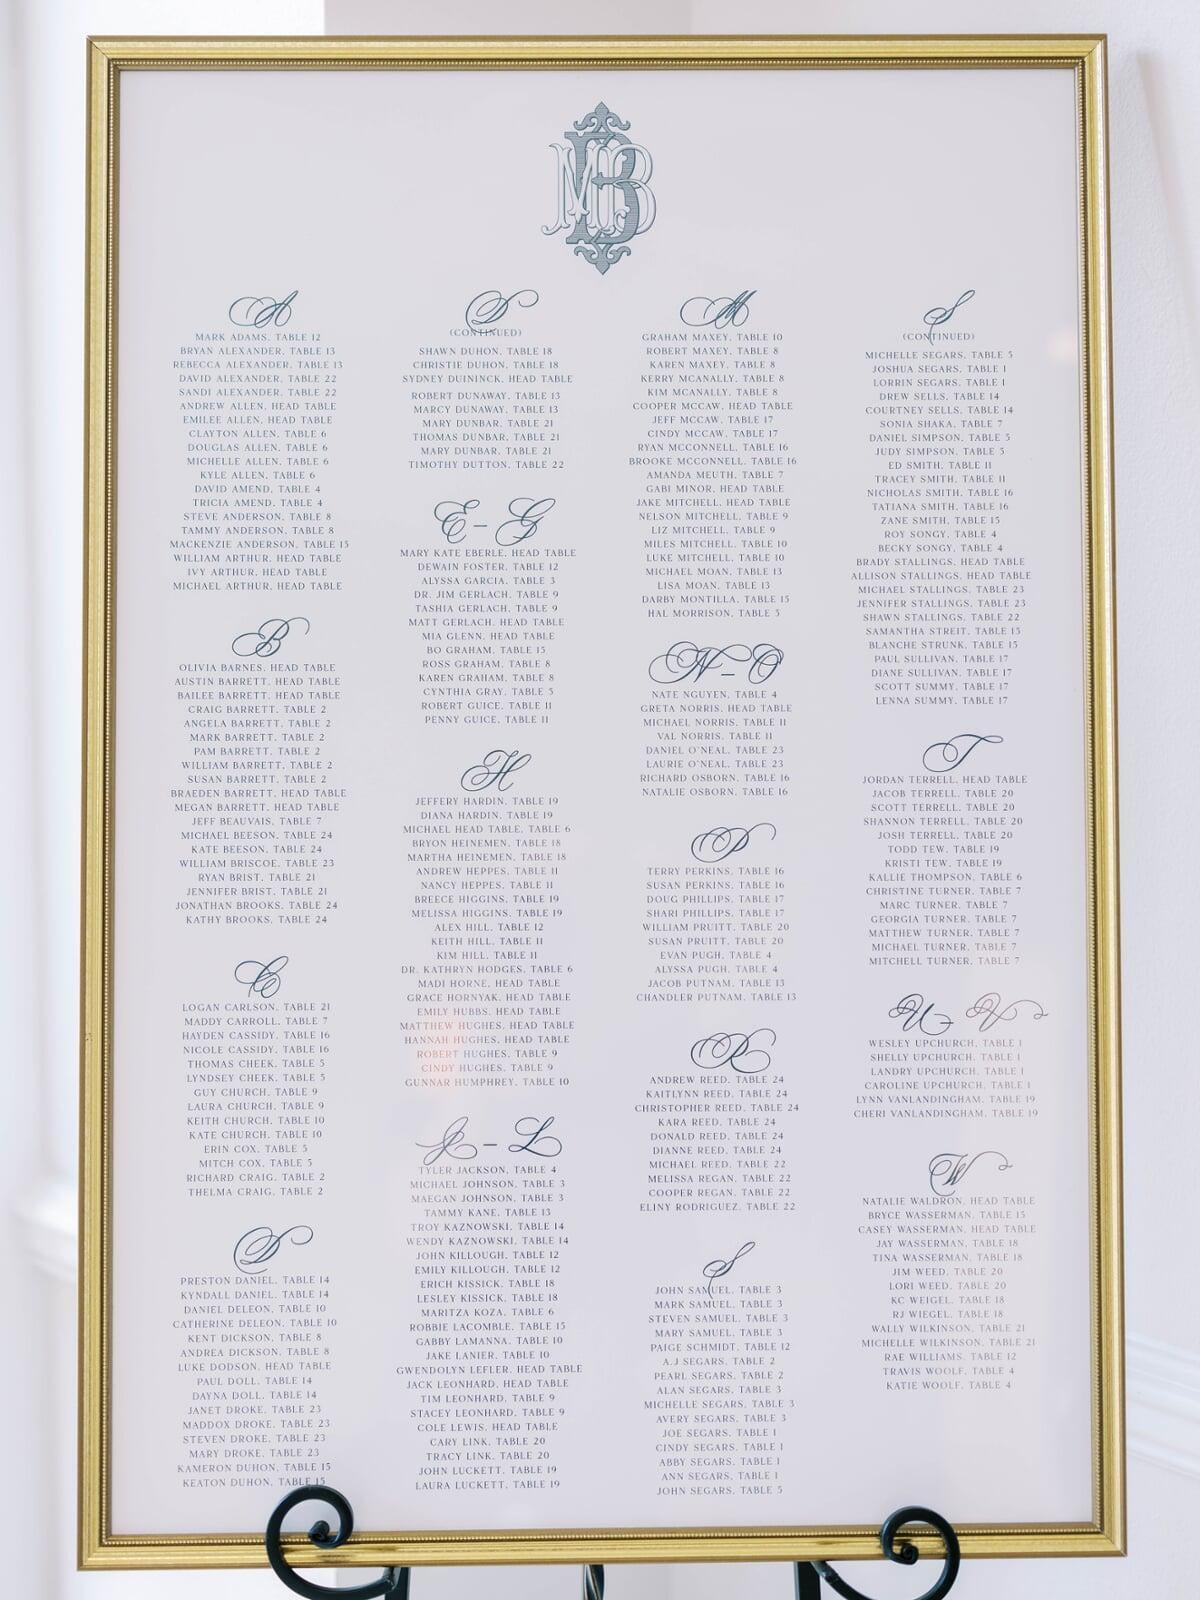 MBG
A
MARK ADAMS, TABLE 12
BRYAN ALEXANDER, TABLE 13
REBECCA ALEXANDER, TABLE 13
DAVID ALEXANDER, TABLE 22
SANDI ALEXANDER, TABLE 22
ANDREW ALLEN, HEAD TABLE
EMILEE ALLEN, HEAD TABLE
CLAYTON ALLEN, TABLE 6
DOUGLAS ALLEN, TABLE 6
MICHELLE ALLEN, TABLE 6
KYLE ALLEN, TABLE 6
DAVID AMEND, TABLE 4
TRICIA AMEND, TABLE 4
STEVE ANDERSON, TABLE 8
TAMMY ANDERSON, TABLE 8
MACKENZIE ANDERSON, TABLE 15
WILLIAM ARTHUR, HEAD TABLE
IVY ARTHUR, HEAD TABLE
MICHAEL ARTHUR, HEAD TABLE
B
OLIVIA BARNES, HEAD TABLE
AUSTIN BARRETT, HEAD TABLE
BAILEE BARRETT, HEAD TABLE
CRAIG BARRETT, TABLE 2
ANGELA BARRETT, TABLE 2
MARK BARRETT, TABLE 2
PAM BARRETT, TABLE 2
WILLIAM BARRETT, TABLE 2
SUSAN BARRETT, TABLE 2
BRAEDEN BARRETT, HEAD TABLE
MEGAN BARRETT, HEAD TABLE
JEFF BEAUVAIS, TABLE 7
MICHAEL BEESON, TABLE 24
KATE BEESON, TABLE 24
WILLIAM BRISCOE, TABLE 23
RYAN BRIST, TABLE 21
JENNIFER BRIST, TABLE 21
JONATHAN BROOKS, TABLE 24
KATHY BROOKS, TABLE 24
C
LOGAN CARLSON, TABLE 21
MADDY CARROLL, TABLE 7
HAYDEN CASSIDY, TABLE 16
NICOLE CASSIDY, TABLE 16
THOMAS CHEEK, TABLE 5
LYNDSEY CHEEK, TABLE 5
GUY CHURCH, TABLE 9
LAURA CHURCH, TABLE 9
KEITH CHURCH, TABLE 10
KATE CHURCH, TABLE 10
ERIN COX, TABLE 5
MITCH COX, TABLE 5
RICHARD CRAIG, TABLE 2
THELMA CRAIG, TABLE 2
D
PRESTON DANIEL, TABLE 14
KYNDALL DANIEL, TABLE 14
DANIEL DELEON, TABLE 10
CATHERINE DELEON, TABLE 10
KENT DICKSON, TABLE 8
ANDREA DICKSON, TABLE 8
LUKE DODSON, HEAD TABLE
PAUL DOLL, TABLE 14
DAYNA DOLL, TABLE 14
JANET DROKE, TABLE 23
MADDOX DROKE, TABLE 23
STEVEN DROKE, TABLE 23
MARY DROKE, TABLE 23
KAMERON DUHON, TABLE 15
KEATON DUHON, TABLE 15
D
(CONTINUED)
SHAWN DUHON, TABLE 18
CHRISTIE DUHON, TABLE 18
SYDNEY DUININCK, HEAD TABLE
ROBERT DUNAWAY, TABLE 13
MARCY DUNAWAY, TABLE 13
MARY DUNBAR, TABLE 21
THOMAS DUNBAR, TABLE 21
MARY DUNBAR, TABLE 21
TIMOTHY DUTTON, TABLE 22
E - G
MARY KATE EBERLE, HEAD TABLE
DEWAIN FOSTER, TABLE 12
ALYSSA GARCIA, TABLE 3
DR. JIM GERLACH, TABLE 9
TASHIA GERLACH, TABLE 9
MATT GERLACH, HEAD TABLE
MIA GLENN, HEAD TABLE
BO GRAHAM, TABLE 15
ROSS GRAHAM, TABLE 8
KAREN GRAHAM, TABLE 8
CYNTHIA GRAY, TABLE 5
ROBERT GUICE, TABLE 11
PENNY GUICE, TABLE 11
H
JEFFERY HARDIN, TABLE 19
DIANA HARDIN, TABLE 19
MICHAEL HEAD TABLE, TABLE 6
BRYON HEINEMEN, TABLE 18
MARTHA HEINEMEN, TABLE 18
ANDREW HEPPES, TABLE 11
NANCY HEPPES, TABLE 11
BREECE HIGGINS, TABLE 19
MELISSA HIGGINS, TABLE 19
ALEX HILL, TABLE 12
KEITH HILL, TABLE 11
KIM HILL, TABLE 11
DR. KATHRYN HODGES, TABLE 6
MADI HORNE, HEAD TABLE
GRACE HORNYAK, HEAD TABLE
EMILY HUBBS, HEAD TABLE
MATTHEW HUGHES, HEAD TABLE
HANNAH HUGHES, HEAD TABLE
ROBERT HUGHES, TABLE 9
CINDY HUGHES, TABLE 9
GUNNAR HUMPHREY, TABLE 10
J - L
TYLER JACKSON, TABLE 4
MICHAEL JOHNSON, TABLE 3
MAEGAN JOHNSON, TABLE 3
TAMMY KANE, TABLE 13
TROY KAZNOWSKI, TABLE 14
WENDY KAZNOWSKI, TABLE 14
JOHN KILLOUGH, TABLE 12
EMILY KILLOUGH, TABLE 12
ERICH KISSICK, TABLE 18
LESLEY KISSICK, TABLE 18
MARITZA KOZA, TABLE 6
ROBBIE LACOMBLE, TABLE 15
GABBY LAMANNA, TABLE 10
JAKE LANIER, TABLE 10
GWENDOLYN LEFLER, HEAD TABLE
JACK LEONHARD, HEAD TABLE
TIM LEONHARD, TABLE 9
STACEY LEONHARD, TABLE 9
COLE LEWIS, HEAD TABLE
CARY LINK, TABLE 20
TRACY LINK, TABLE 20
JOHN LUCKETT, TABLE 19
LAURA LUCKETT, TABLE 19
M
GRAHAM MAXEY, TABLE 10
ROBERT MAXEY, TABLE 8
KAREN MAXEY, TABLE 8
KERRY MCANALLY, TABLE 8
KIM MCANALLY, TABLE 8
COOPER MCCAW, HEAD TABLE
JEFF MCCAW, TABLE 17
CINDY MCCAW, TABLE 17
RYAN MCCONNELL, TABLE 16
BROOKE MCCONNELL, TABLE 16
AMANDA MEUTH, TABLE 7
GABI MINOR, HEAD TABLE
JAKE MITCHELL, HEAD TABLE
NELSON MITCHELL, TABLE 9
LIZ MITCHELL, TABLE 9
MILES MITCHELL, TABLE 10
LUKE MITCHELL, TABLE 10
MICHAEL MOAN, TABLE 13
LISA MOAN, TABLE 13
DARBY MONTILLA, TABLE 15
HAL MORRISON, TABLE 5
N - O
NATE NGUYEN, TABLE 4
GRETA NORRIS, HEAD TABLE
MICHAEL NORRIS, TABLE 11
VAL NORRIS, TABLE 11
DANIEL O'NEAL, TABLE 23
LAURIE O'NEAL, TABLE 23
RICHARD OSBORN, TABLE 16
NATALIE OSBORN, TABLE 16
P
TERRY PERKINS, TABLE 16
SUSAN PERKINS, TABLE 16
DOUG PHILLIPS, TABLE 17
SHARI PHILLIPS, TABLE 17
WILLIAM PRUITT, TABLE 20
SUSAN PRUITT, TABLE 20
EVAN PUGH, TABLE 4
ALYSSA PUGH, TABLE 4
JACOB PUTNAM, TABLE 13
CHANDLER PUTNAM, TABLE 13
R
ANDREW REED, TABLE 24
KAITLYNN REED, TABLE 24
CHRISTOPHER REED, TABLE 24
KARA REED, TABLE 24
DONALD REED, TABLE 24
DIANNE REED, TABLE 24
MICHAEL REED, TABLE 22
MELISSA REGAN, TABLE 22
COOPER REGAN, TABLE 22
ELINY RODRIGUEZ, TABLE 22
S
JOHN SAMUEL, TABLE 3
MARK SAMUEL, TABLE 3
STEVEN SAMUEL, TABLE 3
MARY SAMUEL, TABLE 3
PAIGE SCHMIDT, TABLE 12
A.J SEGARS, TABLE 2
PEARL SEGARS, TABLE 2
ALAN SEGARS, TABLE 3
MICHELLE SEGARS, TABLE 3
AVERY SEGARS, TABLE 3
JOE SEGARS, TABLE 1
CINDY SEGARS, TABLE 1
ABBY SEGARS, TABLE 1
ANN SEGARS, TABLE 1
JOHN SEGARS, TABLE 5
S
(CONTINUED)
MICHELLE SEGARS, TABLE 5
JOSHUA SEGARS, TABLE 1
LORRIN SEGARS, TABLE 1
DREW SELLS, TABLE 14
COURTNEY SELLS, TABLE 14
SONIA SHAKA, TABLE 7
DANIEL SIMPSON, TABLE 5
JUDY SIMPSON, TABLE 5
ED SMITH, TABLE 11
TRACEY SMITH, TABLE 11
NICHOLAS SMITH, TABLE 16
TATIANA SMITH, TABLE 16
ZANE SMITH, TABLE 15
ROY SONGY, TABLE 4
BECKY SONGY, TABLE 4
BRADY STALLINGS, HEAD TABLE
ALLISON STALLINGS, HEAD TABLE
MICHAEL STALLINGS, TABLE 23
JENNIFER STALLINGS, TABLE 23
SHAWN STALLINGS, TABLE 22
SAMANTHA STREIT, TABLE 15
BLANCHE STRUNK, TABLE 15
PAUL SULLIVAN, TABLE 17
DIANE SULLIVAN, TABLE 17
SCOTT SUMMY, TABLE 17
LENNA SUMMY, TABLE 17
T
JORDAN TERRELL, HEAD TABLE
JACOB TERRELL, TABLE 20
SCOTT TERRELL, TABLE 20
SHANNON TERRELL, TABLE 20
JOSH TERRELL, TABLE 20
TODD TEW, TABLE 19
KRISTI TEW, TABLE 19
KALLIE THOMPSON, TABLE 6
CHRISTINE TURNER, TABLE 7
MARC TURNER, TABLE 7
GEORGIA TURNER, TABLE 7
MATTHEW TURNER, TABLE 7
MICHAEL TURNER, TABLE 7
MITCHELL TURNER, TABLE 7
U - V
WESLEY UPCHURCH, TABLE 1
SHELLY UPCHURCH, TABLE 1
LANDRY UPCHURCH, TABLE 1
CAROLINE UPCHURCH, TABLE 1
LYNN VANLANDINGHAM, TABLE 19
CHERI VANLANDINGHAM, TABLE 19
W
NATALIE WALDRON, HEAD TABLE
BRYCE WASSERMAN, TABLE 15
CASEY WASSERMAN, HEAD TABLE
JAY WASSERMAN, TABLE 18
TINA WASSERMAN, TABLE 18
JIM WEED, TABLE 20
LORI WEED, TABLE 20
KC WEIGEL, TABLE 18
RJ WIEGEL, TABLE 18
WALLY WILKINSON, TABLE 21
MICHELLE WILKINSON, TABLE 21
RAE WILLIAMS, TABLE 12
TRAVIS WOOLF, TABLE 4
KATIE WOOLF, TABLE 4